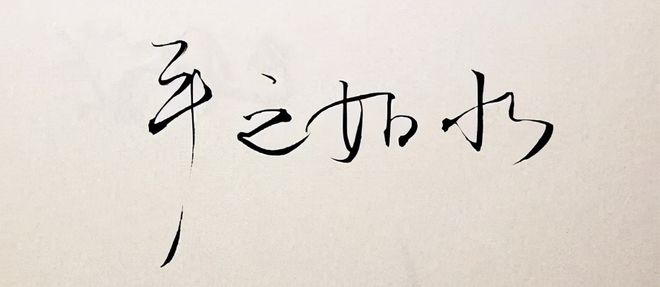 平之如水